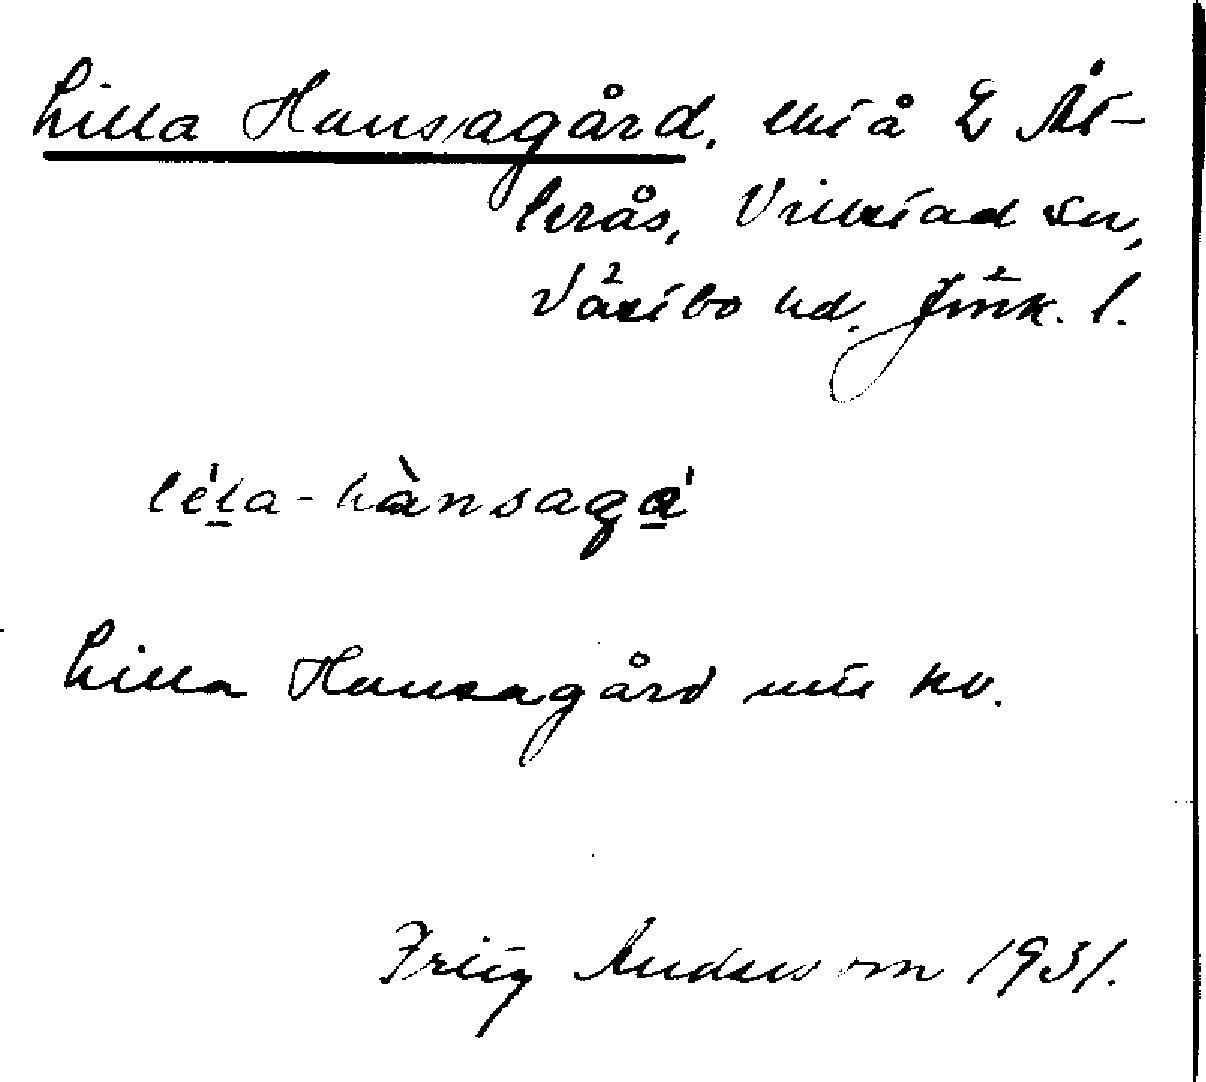 Lilla Hansagård, ht å 2 Åt-
lerås, Villstad sn,
Västbo hd. Jönk. l.
léla-hànsagá
Lilla Hansagård nu kv.
Fritz Andersson 1931.